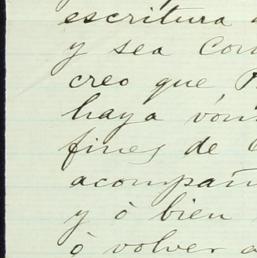 escritura
y sea Con
creo que
haya
fines de
acompañ
y ò bien
ò volver a